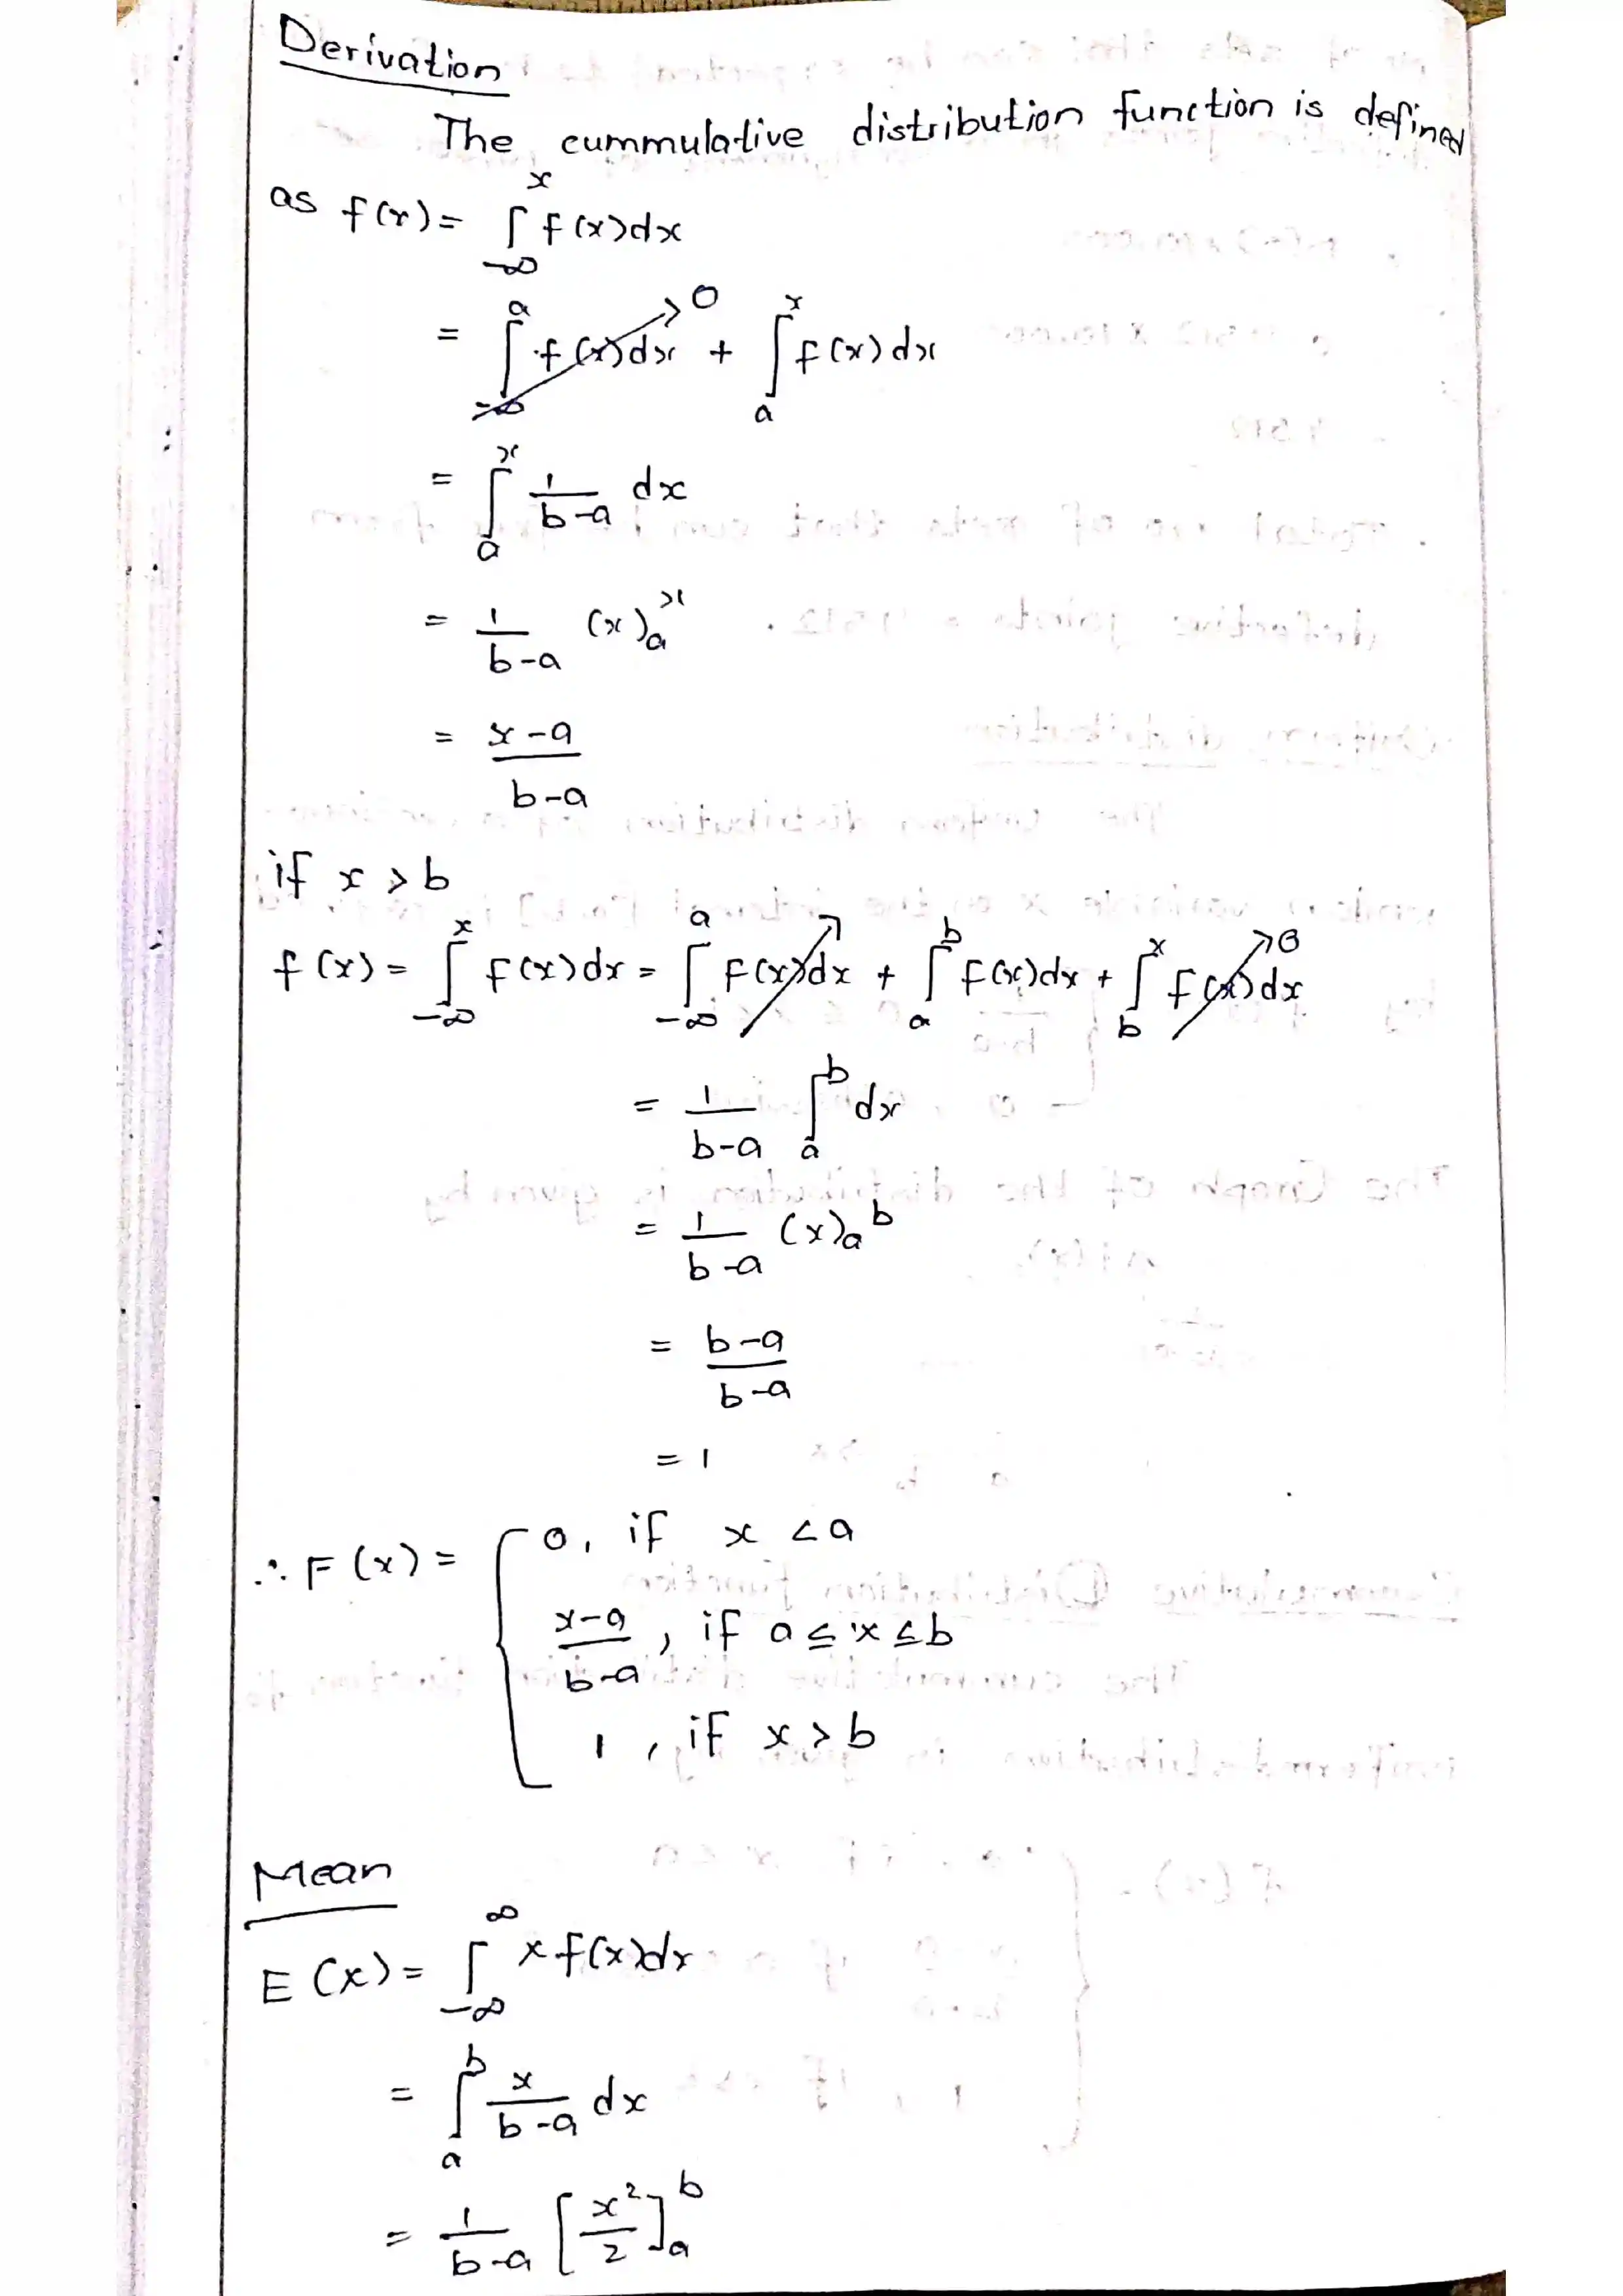 Derivation
The cummulative distribution function is defined
as f(x) = ∫_{-∞}^{x} f(x)dx
= ∫_{-∞}^{a} f(x)dx → 0 + ∫_{a}^{x} f(x)dx
= ∫_{a}^{x} 1/(b-a) dx
= 1/(b-a) (x)_{a}^{x}
= (x-a)/(b-a)
if x > b
f(x) = ∫_{-∞}^{x} f(x)dx = ∫_{-∞}^{a} f(x)dx + ∫_{a}^{b} f(x)dx + ∫_{b}^{x} f(x)dx → 0
= 1/(b-a) ∫_{a}^{b} dx
= 1/(b-a) (x)_{a}^{b}
= (b-a)/(b-a)
= 1
∴ F(x) = { 0, if x < a
(x-a)/(b-a), if a ≤ x ≤ b
1, if x > b
Mean
E(x) = ∫_{-∞}^{∞} x f(x)dx
= ∫_{a}^{b} x/(b-a) dx
= 1/(b-a) [x²/2]_{a}^{b}